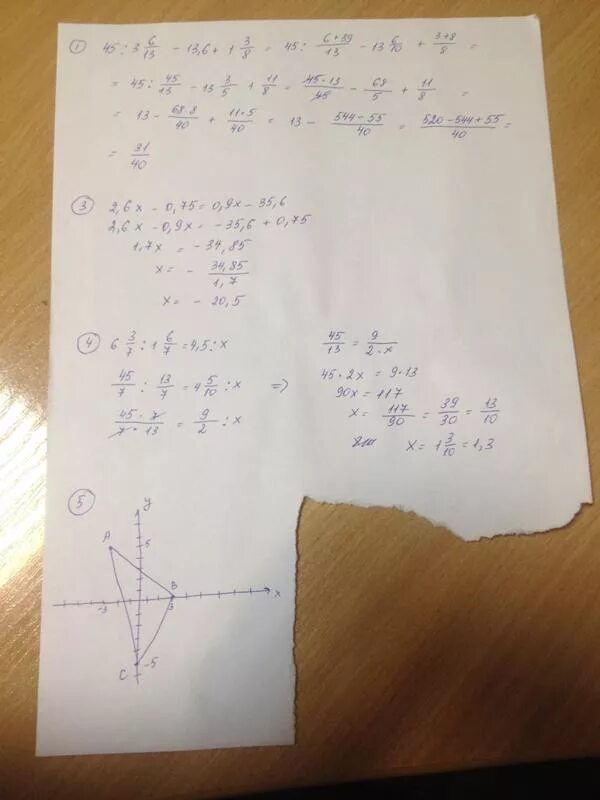 ① 45 : 3 6/13 - 13,6 + 1 3/8 = 45 : (6+39)/13 - 13 6/10 + (3+8)/8 =
= 45 : 45/13 - 13 3/5 + 11/8 = (45·13)/45 - 68/5 + 11/8 =
= 13 - (68·8)/40 + (11·5)/40 = 13 - (544-55)/40 = (520-544+55)/40 =
= 31/40
③ 2,6x - 0,75 = 0,9x - 35,6
2,6x - 0,9x = -35,6 + 0,75
1,7x = -34,85
x = - 34,85/1,7
x = - 20,5
④ 6 3/7 : 1 6/7 = 4,5 : x
45/7 : 13/7 = 4 5/10 : x =>
(45·7)/(7·13) = 9/2 : x
45/13 = 9/(2·x)
45·2x = 9·13
90x = 117
x = 117/90 = 39/30 = 13/10
x = 1 3/10 = 1,3
⑤
y
A
5
B
-3
3
x
C
-5